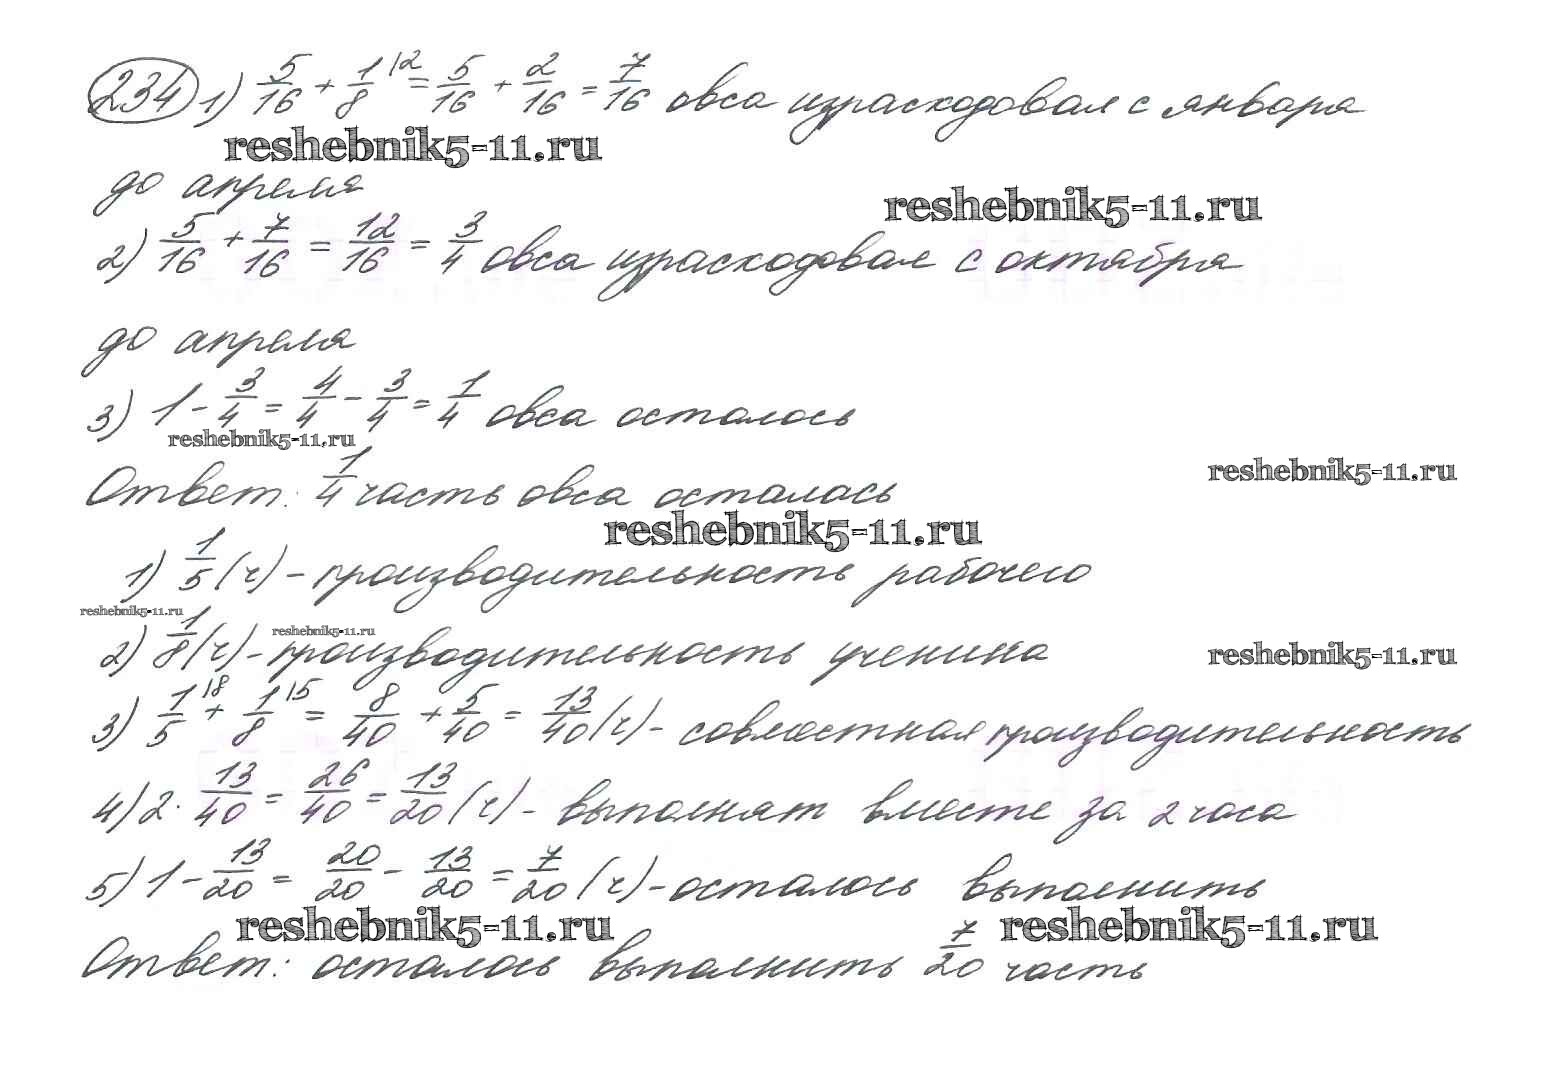 234 1) 5/16 + 1/8 |2 = 5/16 + 2/16 = 7/16 овса израсходовал с января
reshebnik5-11.ru
до апреля
reshebnik5-11.ru
2) 5/16 + 7/16 = 12/16 = 3/4 овса израсходовал с октября
до апреля
3) 1 - 3/4 = 4/4 - 3/4 = 1/4 овса осталось
reshebnik5-11.ru
Ответ: 1/4 часть овса осталась
reshebnik5-11.ru
reshebnik5-11.ru
1) 1/5 (ч) - производительность рабочего
reshebnik5-11.ru
reshebnik5-11.ru
2) 1/8 (ч) - производительность ученика
reshebnik5-11.ru
3) 1/5 |8 + 1/8 |5 = 8/40 + 5/40 = 13/40 (ч) - совместная производительность
4) 2 · 13/40 = 26/40 = 13/20 (ч) - выполнят вместе за 2 часа
5) 1 - 13/20 = 20/20 - 13/20 = 7/20 (ч) - осталось выполнить
reshebnik5-11.ru
reshebnik5-11.ru
Ответ: осталось выполнить 7/20 часть